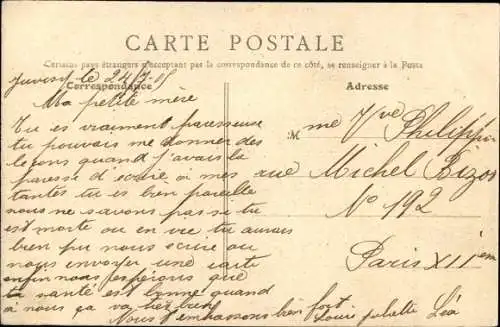 CARTE POSTALE
Certains pays étrangers n'acceptant pas la correspondance de ce côté, se renseigner à la Poste
Correspondance
Adresse
Juvisy le 24/7-05
Ma petite mère
Tu es vraiment paresseuse
tu pouvais me donner des
leçons quand j'avais la
paresse d'écrire à mes
tantes tu es bien pareille
nous ne savons pas si tu
est morte ou en vie tu aurais
bien pu nous écrire ou
nous envoyer une carte
enfin nous espérons que
ta santé est bonne quand
à nous ça va très bien
Nous t'embrassons bien fort
Louis Léa
Mme Vve Philippe
rue Michel Bizot
No 192
Paris XIIem